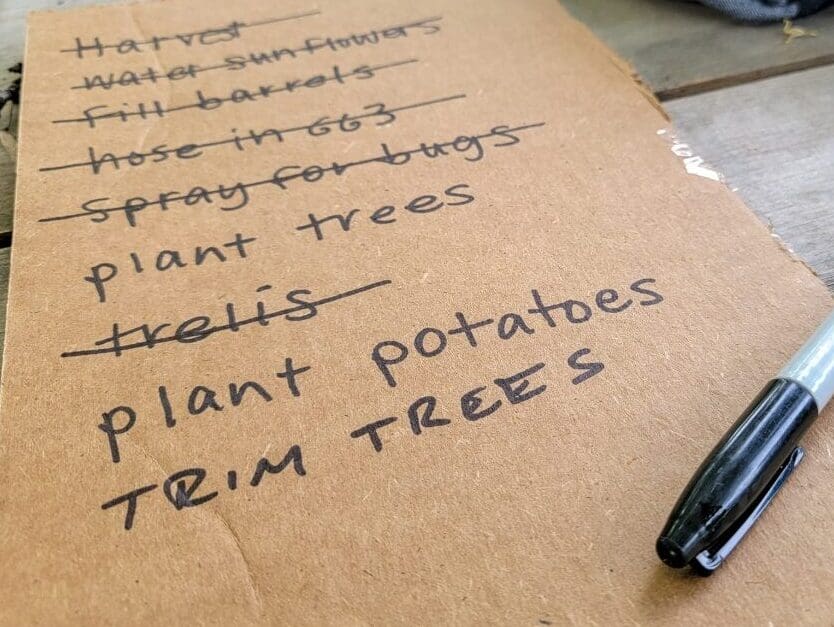 Harvest
water sunflowers
Fill barrels
hose in GG3
Spray for bugs
plant trees
trelis
plant potatoes
TRIM TREES